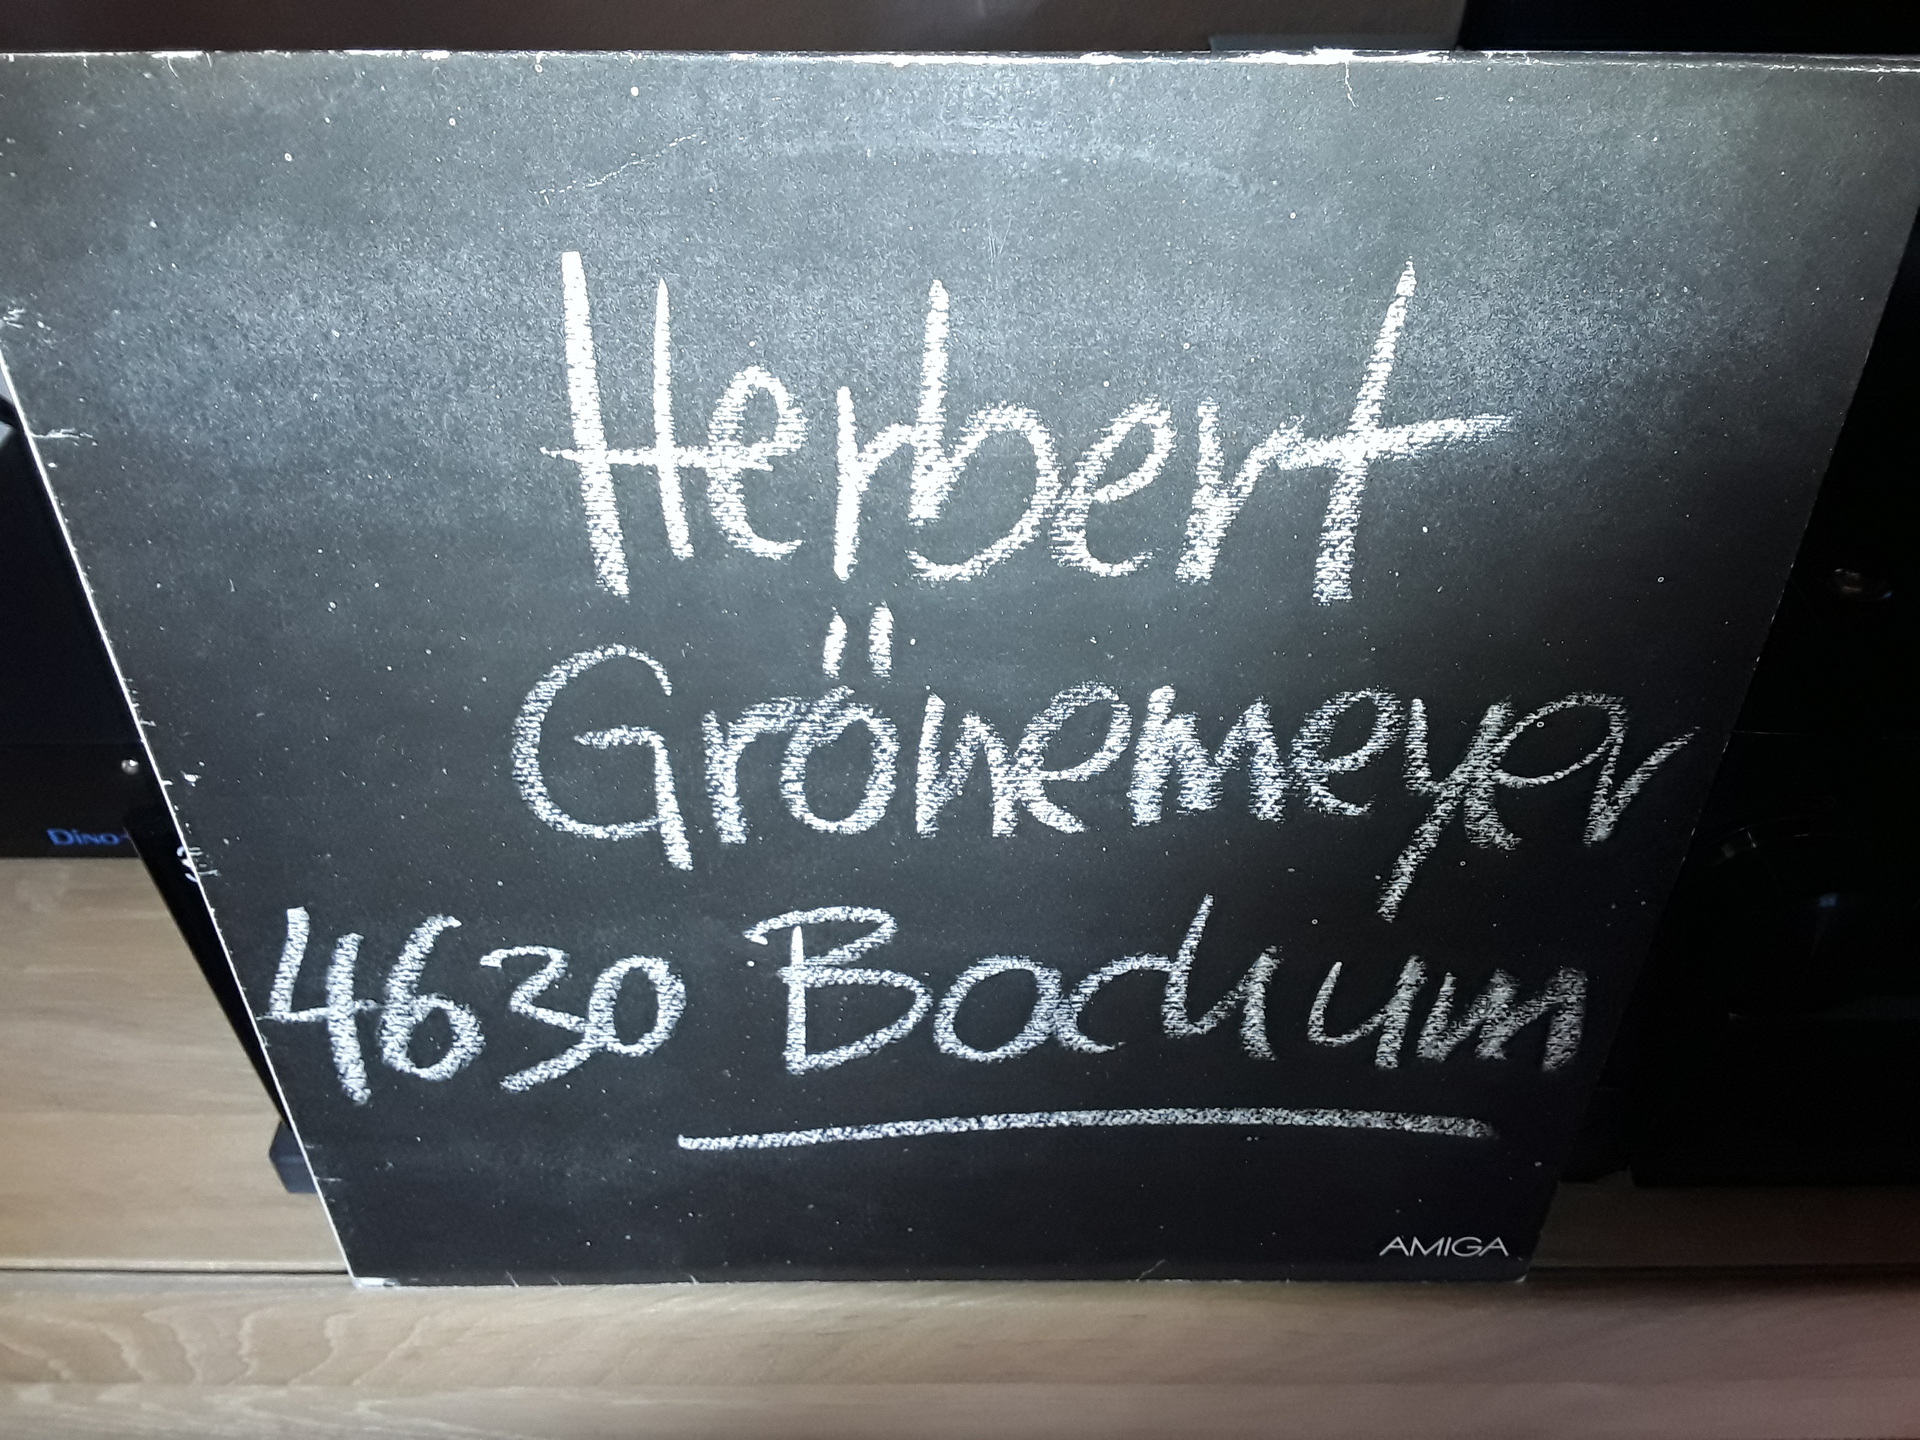 Herbert
Grönemeyer
4630 Bochum
AMIGA